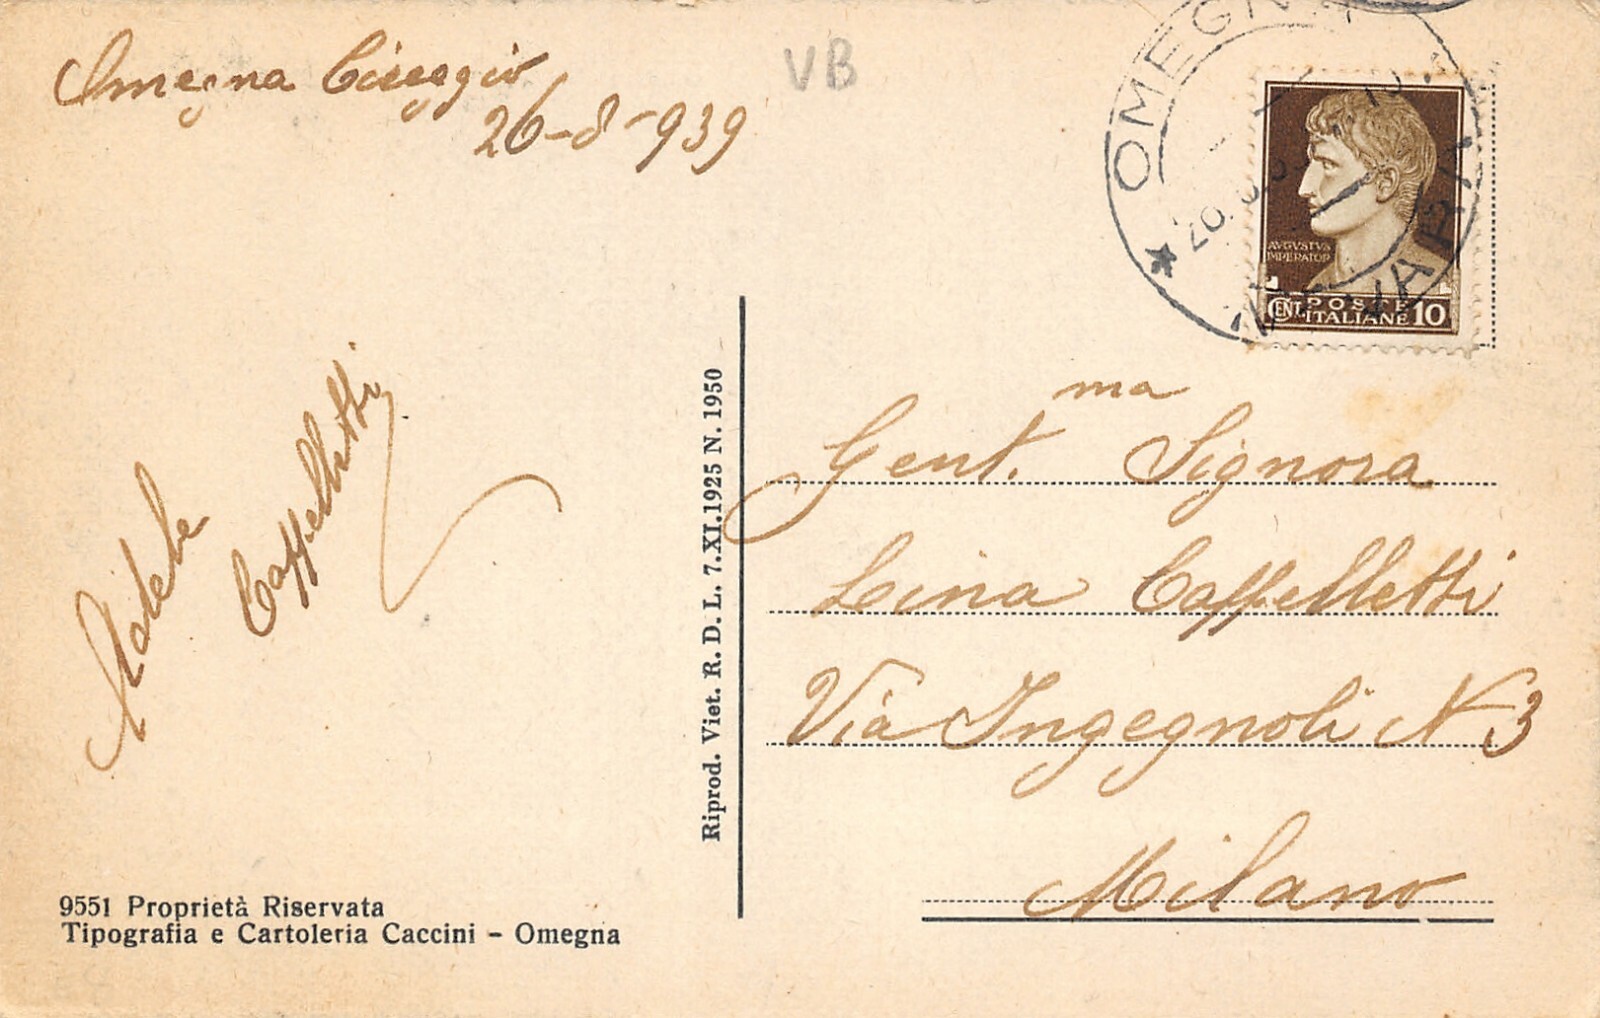 Omegna Cireggio
26-8-939
VB
OMEGNA
NOVARA
AVGVSTVS
IMPERATOR
CENT. POSTE ITALIANE 10
Adele
Caffelletti
Riprod. Viet. R. D. L. 7.XI.1925 N. 1950
Gent.ma Signora
Lina Caffelletti
Via Ingegnoli N 3
Milano
9551 Proprietà Riservata
Tipografia e Cartoleria Caccini - Omegna